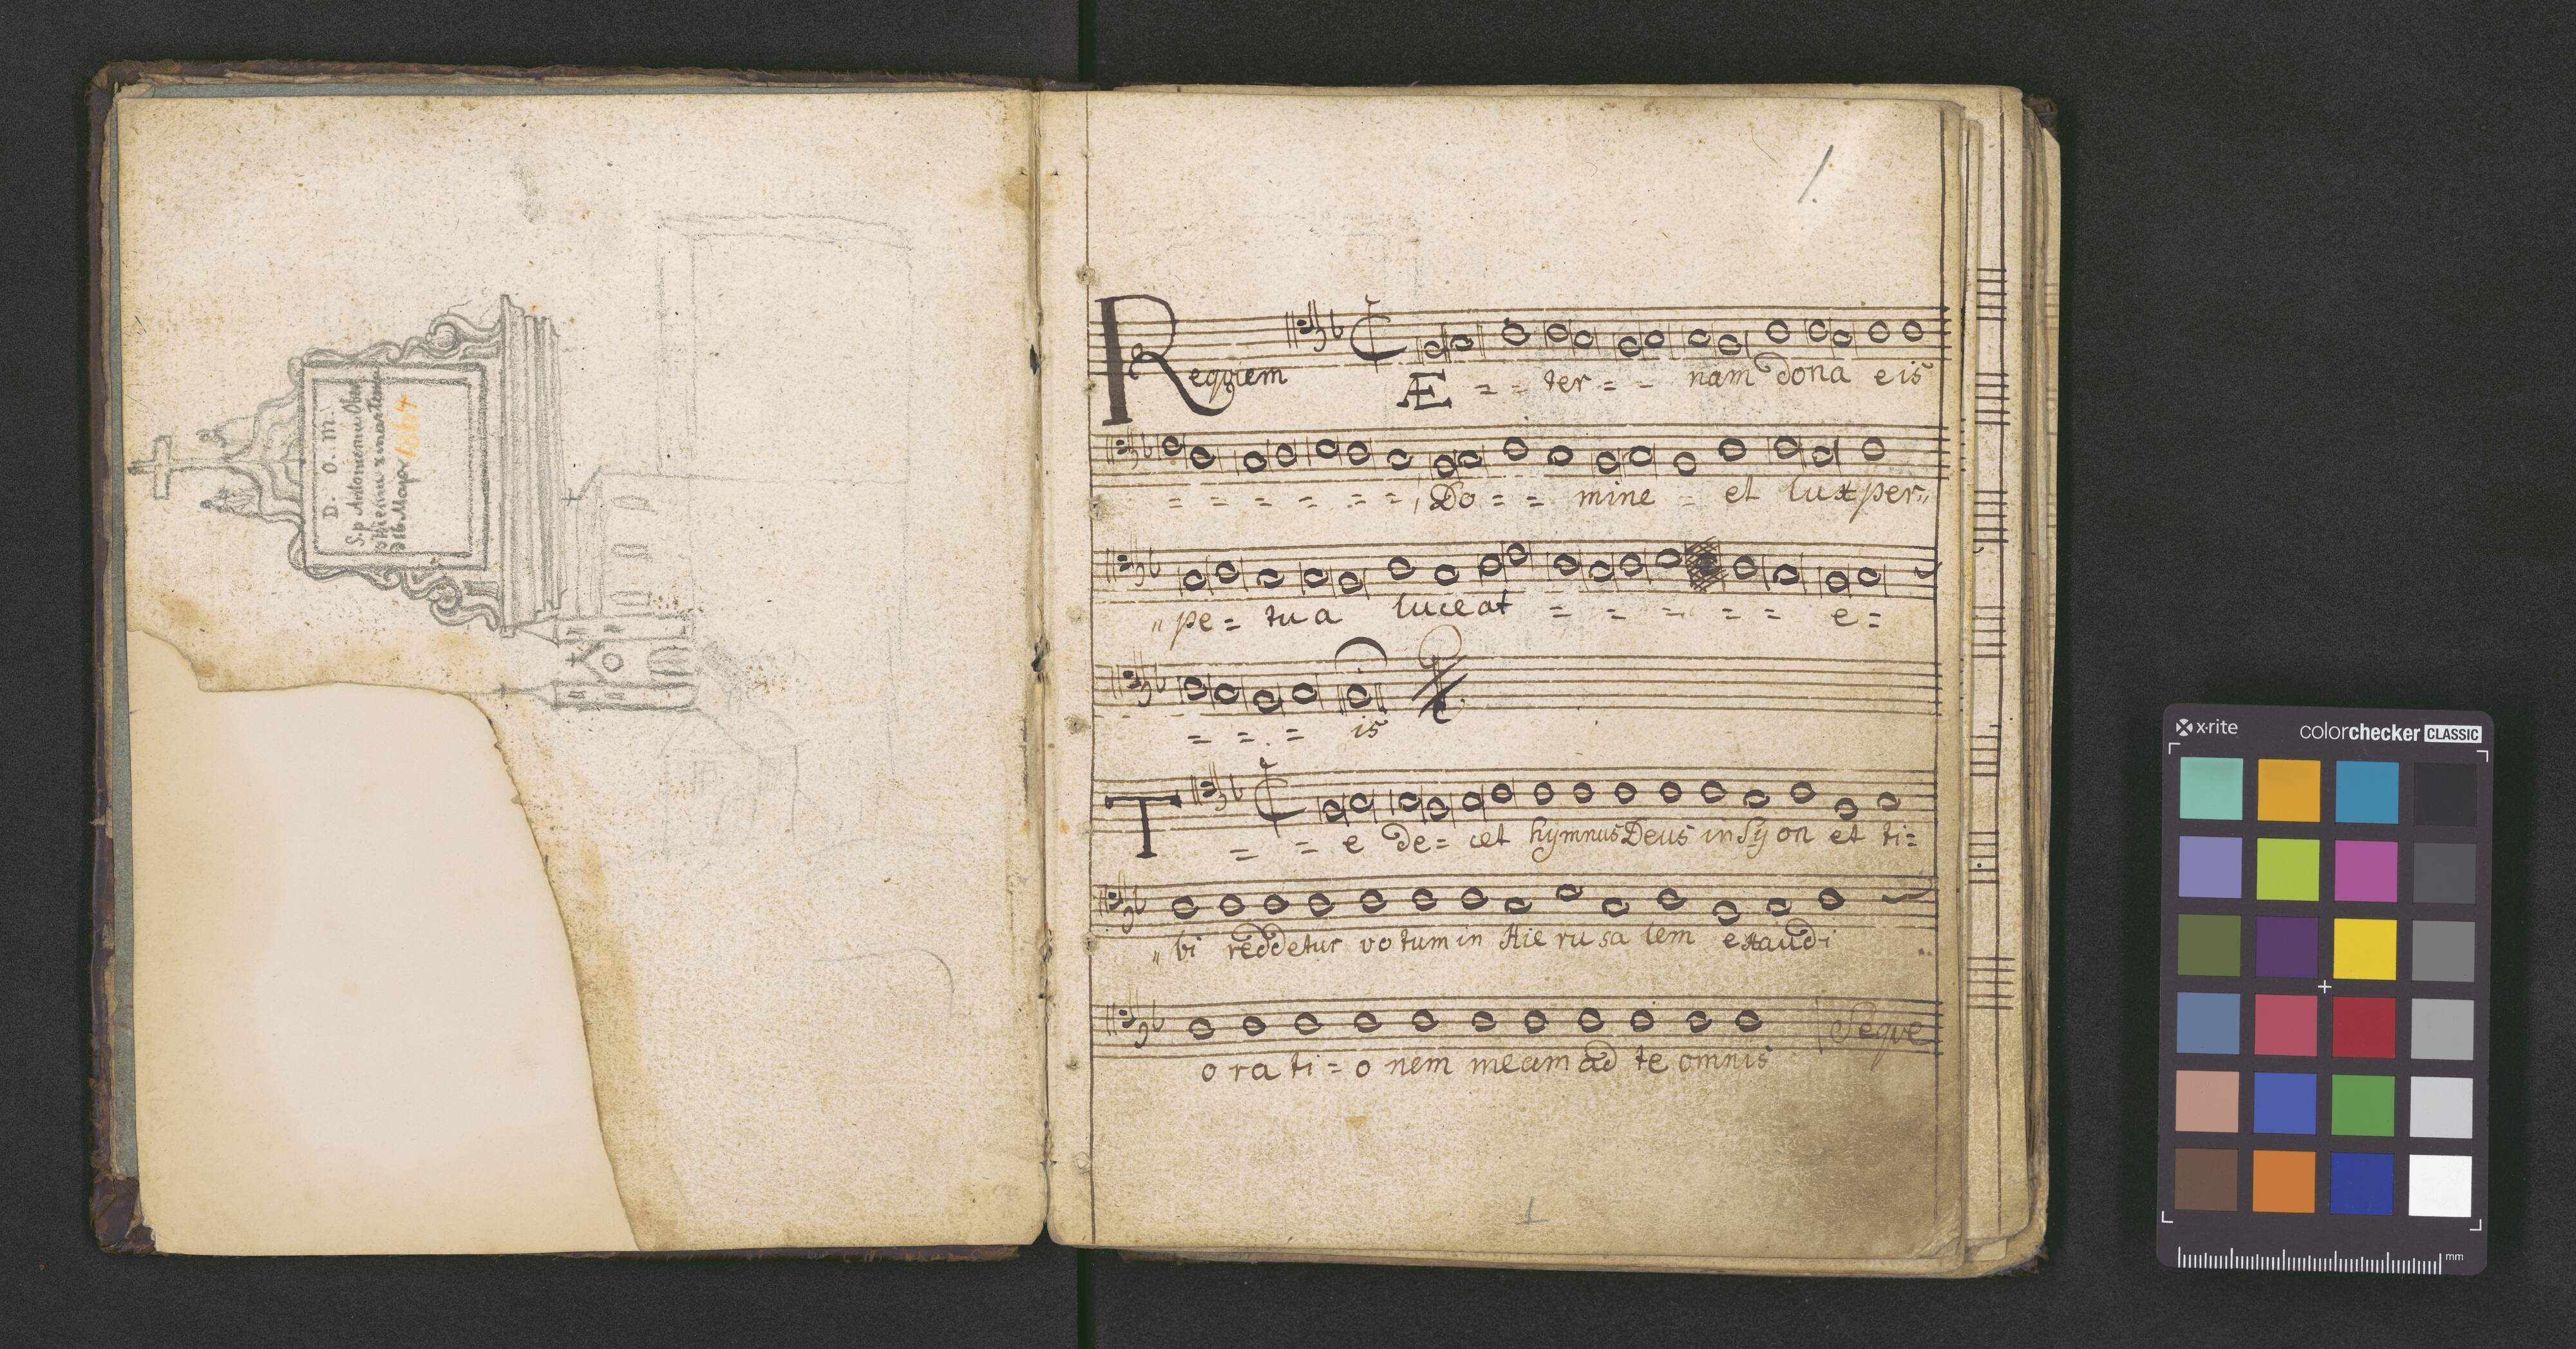 D. O. M.
S.p Antoniemu Ober
1.
Requiem Æ = = ter = = nam dona eis
= = = = = = , Do = = mine = et lux per„
„ pe = tu a luceat = = = = = e =
= = . = is
T = = e de = cet hymnus Deus in Sÿ on et ti=
„ bi reddetur votum in Hie ru sa lem exaudi
o ra ti = o nem meam ad te omnis Seque
1
x·rite colorchecker CLASSIC
mm